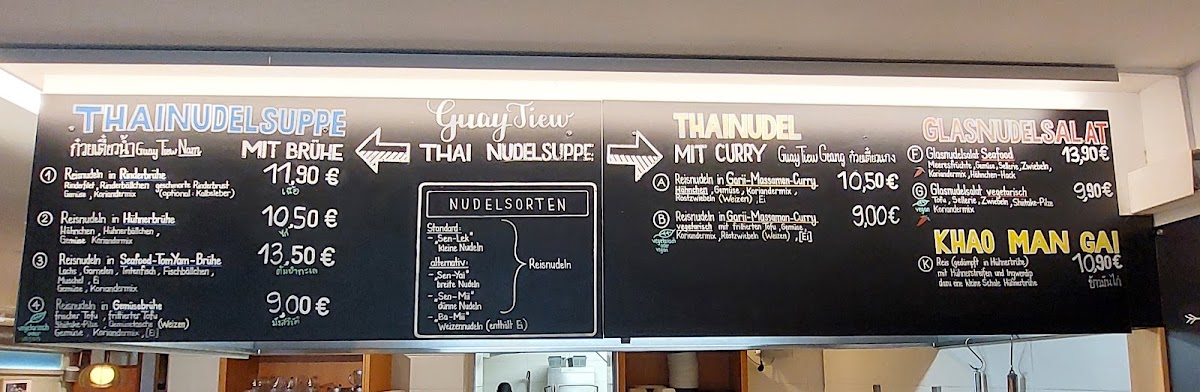 THAINUDELSUPPE
ก๋วยเตี๋ยวน้ำ Guay Tiew Nam MIT BRÜHE
① Reisnudeln in Rinderbrühe 11,90 €
Rinderfilet, Rinderbällchen geschmorte Rinderbrust,
Gemüse, Koriandermix (optional: Kalbsleber)
เนื้อ
② Reisnudeln in Hühnerbrühe 10,50 €
Hähnchen, Hühnerbällchen,
Gemüse Koriandermix
ไก่
③ Reisnudeln in Seafood-TomYam-Brühe 13,50 €
Lachs, Garnelen, Tintenfisch, Fischbällchen,
Muschel, Ei
Gemüse, Koriandermix
ต้มยำทะเล
④ Reisnudeln in Gemüsebrühe 9,00 €
frischer Tofu, frittierter Tofu
Shiitake-Pilze, Gemüsetasche (Weizen)
Gemüse, Koriandermix, [Ei]
มังสวิรัติ
vegetarisch
oder
vegan
Guay Tiew
THAI NUDELSUPPE
NUDELSORTEN
Standard:
- "Sen-Lek"
kleine Nudeln
alternativ:
- "Sen-Yai"
breite Nudeln
- "Sen-Mii"
dünne Nudeln
- "Ba-Mii"
Weizennudeln (enthält Ei)
Reisnudeln
THAINUDEL
MIT CURRY Guay Tiew Gaang ก๋วยเตี๋ยวแกง
Ⓐ Reisnudeln in Garii-Massaman-Curry 10,50 €
Hähnchen, Gemüse, Koriandermix,
Röstzwiebeln (Weizen), Ei
Ⓑ Reisnudeln in Garii-Massaman-Curry 9,00 €
vegetarisch mit frittiertem Tofu, Gemüse,
Koriandermix, Röstzwiebeln (Weizen), [Ei]
vegetarisch
oder
vegan
GLASNUDELSALAT
Ⓕ Glasnudelsalat Seafood 13,90 €
Meeresfrüchte, Gemüse, Sellerie, Zwiebeln,
Koriandermix, Hähnchen-Hack
Ⓖ Glasnudelsalat vegetarisch 9,90 €
Tofu, Sellerie, Zwiebeln, Shiitake-Pilze
Koriandermix
vegan
KHAO MAN GAI
Ⓚ Reis (gedämpft in Hühnerbrühe) 10,90 €
mit Hühnerstreifen und Ingwerdip
dazu eine kleine Schale Hühnerbrühe
ข้าวมันไก่